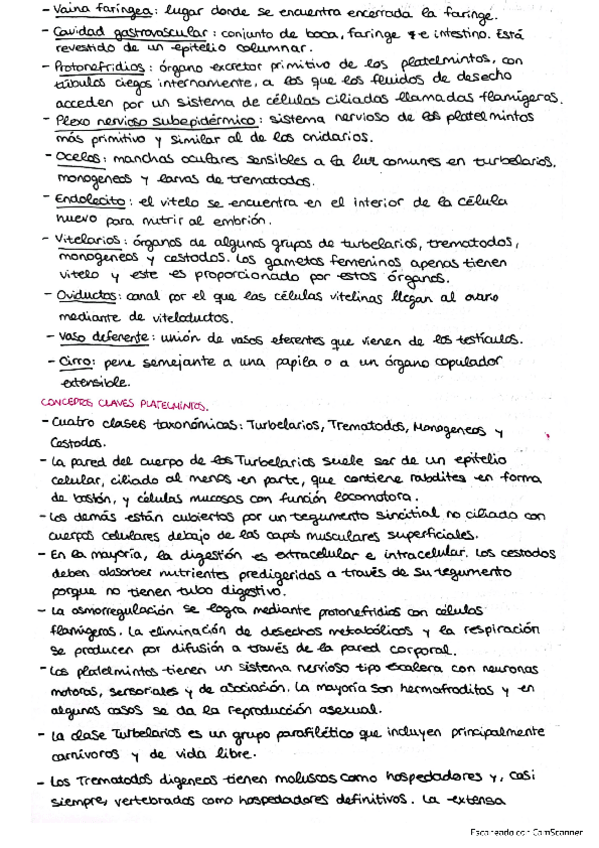 - Vaina faríngea: lugar donde se encuentra encerrada la faringe.
- Cavidad gastrovascular: conjunto de boca, faringe e intestino. Está
revestido de un epitelio columnar.
- Protonefridios: órgano excretor primitivo de los platelmintos, con
túbulos ciegos internamente, a los que los fluidos de desecho
acceden por un sistema de células ciliadas llamadas flamígeras.
- Plexo nervioso subepidérmico: sistema nervioso de los platelmintos
más primitivo y similar al de los cnidarios.
- Ocelos: manchas oculares sensibles a la luz comunes en turbelarios,
monogeneos y larvas de trematodos.
- Endolecito: el vitelo se encuentra en el interior de la célula
huevo para nutrir al embrión.
- Vitelarios: órganos de algunos grupos de turbelarios, trematodos,
monogeneos y cestodos. Los gametos femeninos apenas tienen
vitelo y este es proporcionado por estos órganos.
- Oviductos: canal por el que las células vitelinas llegan al ovario
mediante de viteloductos.
- Vaso deferente: unión de vasos eferentes que vienen de los testículos.
- Cirro: pene semejante a una papila o a un órgano copulador
extensible.
CONCEPTOS CLAVES PLATELMINTOS.
- Cuatro clases taxonómicas: Turbelarios, Trematodos, Monogeneos y
Cestodos.
- La pared del cuerpo de los Turbelarios suele ser de un epitelio
celular, ciliado al menos en parte, que contiene rabdites en forma
de bastón, y células mucosas con función locomotora.
- Los demás están cubiertos por un tegumento sincitial no ciliado con
cuerpos celulares debajo de las capas musculares superficiales.
- En la mayoría, la digestión es extracelular e intracelular. Los cestodos
deben absorber nutrientes predigeridos a través de su tegumento
porque no tienen tubo digestivo.
- La osmorregulación se logra mediante protonefridios con células
flamígeras. La eliminación de desechos metabólicos y la respiración
se producen por difusión a través de la pared corporal.
- Los platelmintos tienen un sistema nervioso tipo escalera con neuronas
motoras, sensoriales y de asociación. La mayoría son hermafroditas y en
algunos casos se da la reproducción asexual.
- La clase Turbelarios es un grupo parafilético que incluyen principalmente
carnívoros y de vida libre.
- Los Trematodos digeneos tienen moluscos como hospedadores y, casi
siempre, vertebrados como hospedadores definitivos. La extensa
Escaneado con CamScanner